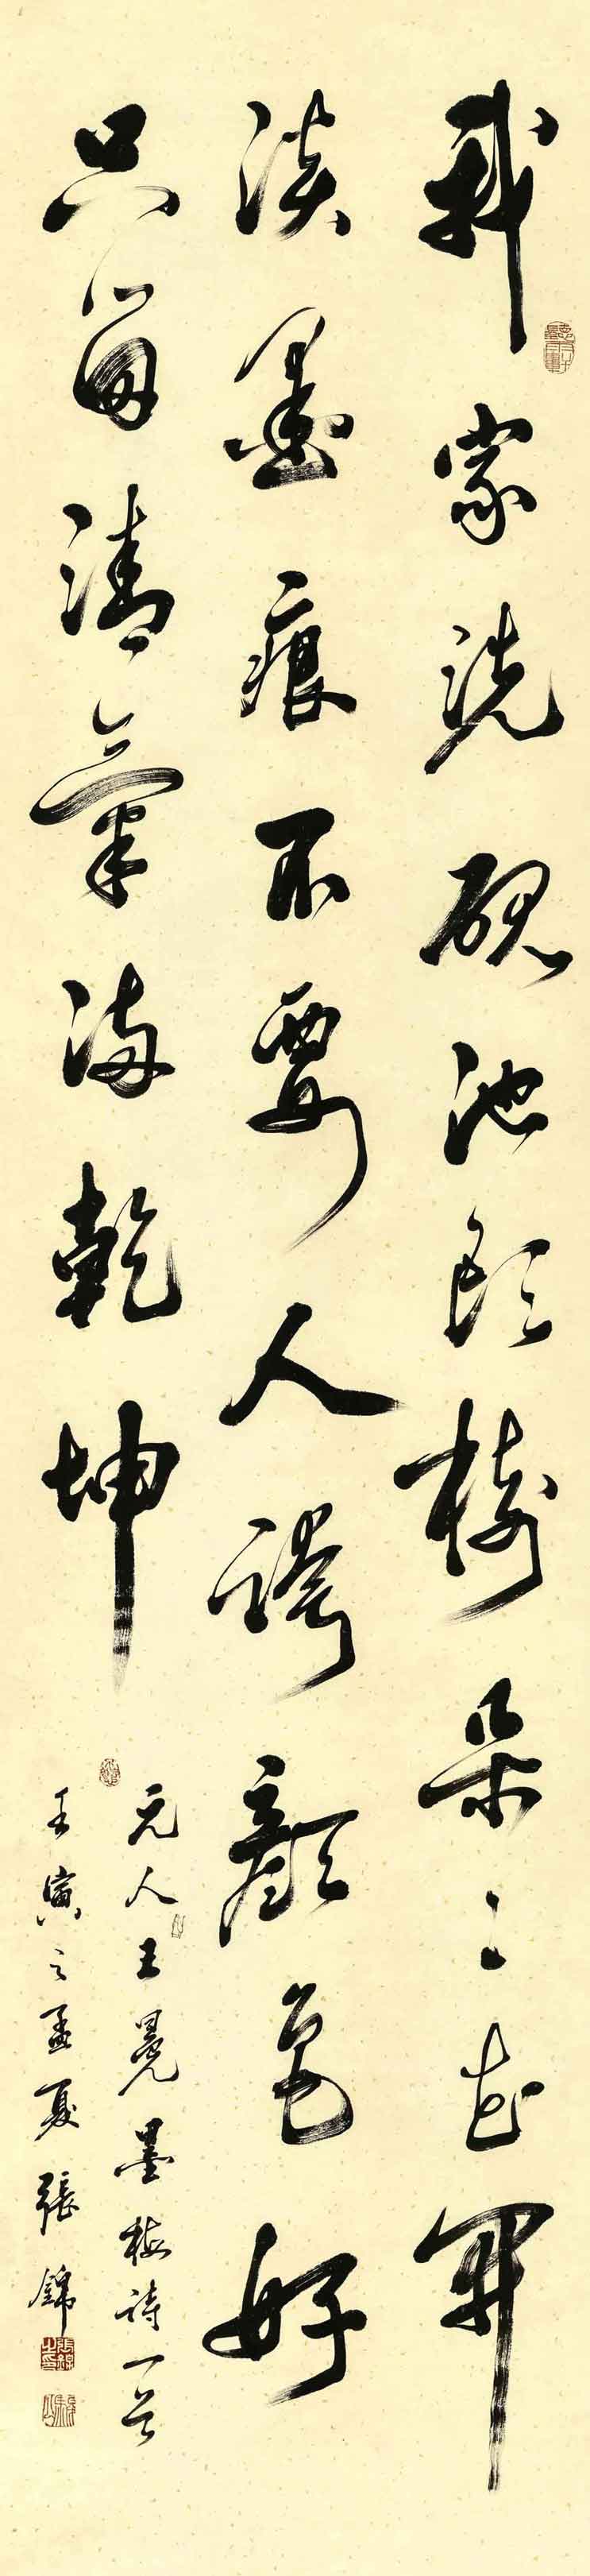 我家洗硯池頭樹朵々花開
淡墨痕不要人誇顏色好
只留清氣滿乾坤
元人王冕墨梅詩一首
壬寅之孟夏張錦